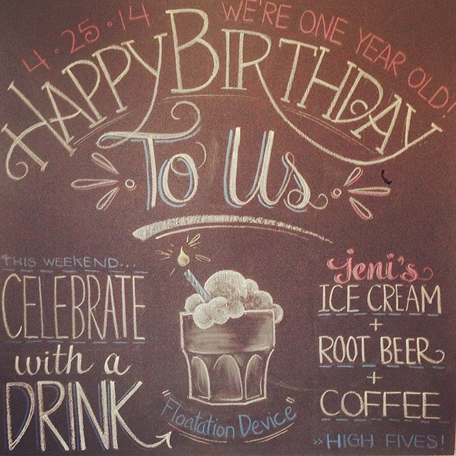 4·25·14 WE'RE ONE YEAR OLD!
HAPPY BIRTHDAY
To Us
THIS WEEKEND...
CELEBRATE
with a
DRINK
"Floatation Device"
jeni's
ICE CREAM
+
ROOT BEER
+
COFFEE
» HIGH FIVES!